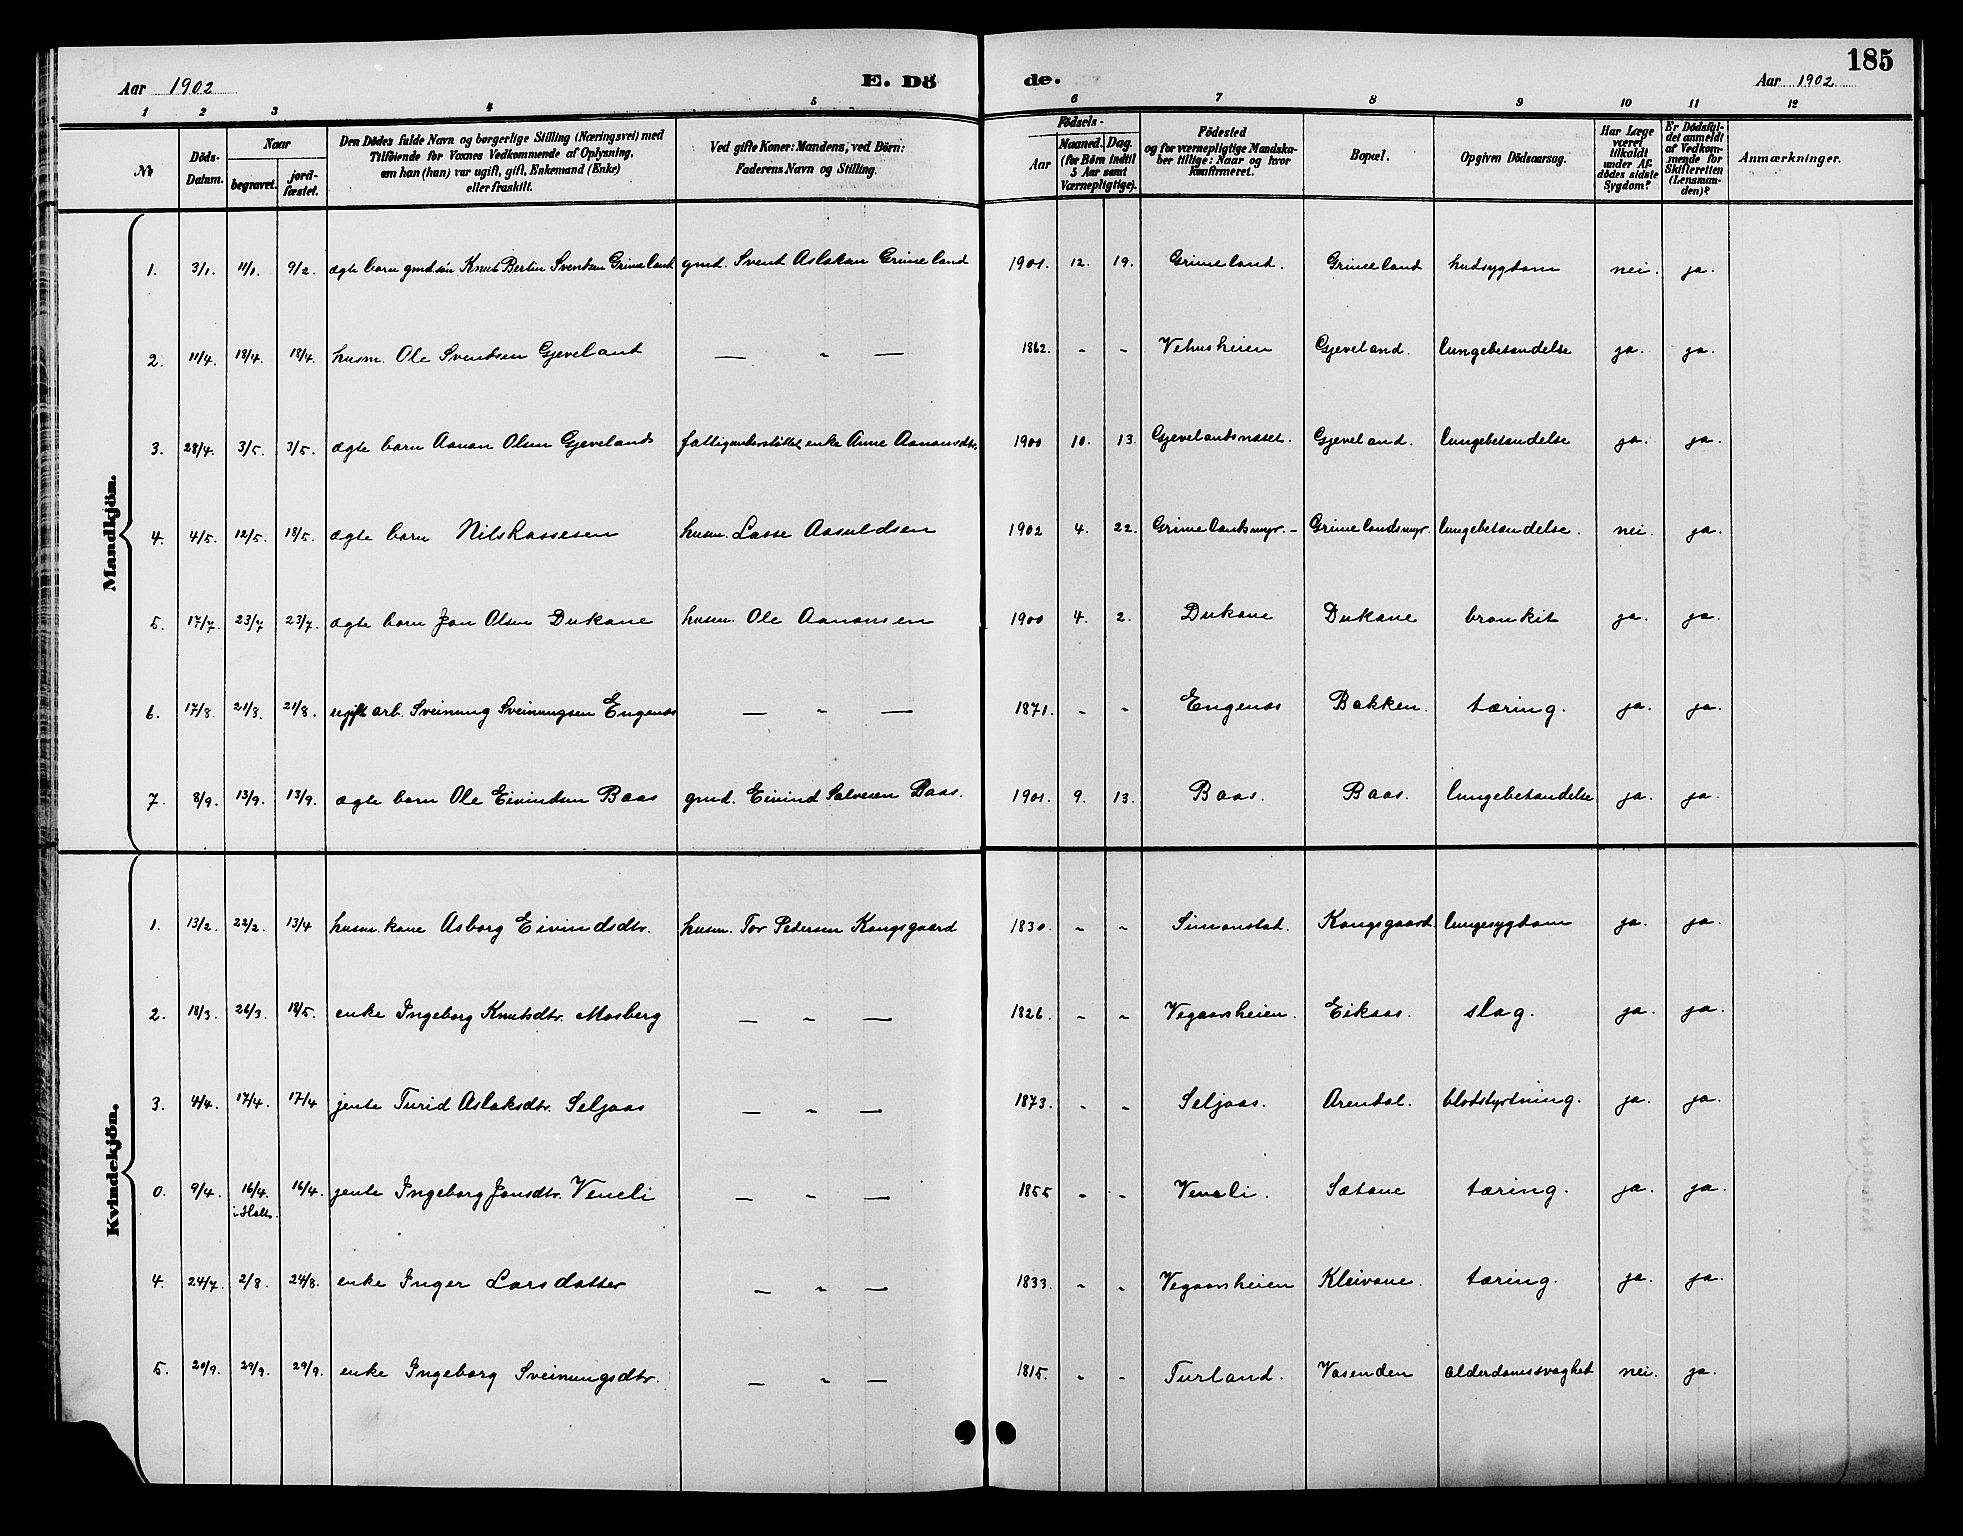 185
Aar 1902 E. Dö de. Aar 1902
1 2 3 4 5 6 7 8 9 10 11 12
№ | Döds-Datum. | Naar begravet. | jord-fæstet. | Den Dödes fulde Navn og borgerlige Stilling (Næringsvei) med Tilföiende for Voxnes Vedkommende af Oplysning, om han (hun) var ugift, gift, Enkemand (Enke) eller fraskilt. | Ved gifte Koner: Mandens, ved Börn: Faderens Navn og Stilling. | Födsels- Aar | Maaned. Dag. (for Börn indtil 5 Aar samt Værnepligtige). | Födested og for værnepligtige Mandskaber tillige: Naar og hvor konfirmeret. | Bopæl. | Opgiven Dödsaarsag. | Har Læge været tilkaldt under Afdödes sidste Sygdom? | Er Dödsfaldet anmeldt af Vedkommende for Skifteretten (Lensmanden)? | Anmærkninger.
Mandkjön.
1. 3/1. 11/1. 9/2. ægte barn gmd.sön Knut Bertin Sventsen Grimeland gmd. Svent Aslaksen Grimeland 1901. 12. 19. Grimeland. Grimeland hudsygdom nei. ja.
2. 11/4. 18/4. 18/4. husm. Ole Sventsen Gjeveland — " — 1862. - - Vehusheien Gjeveland. lungebetændelse ja. ja.
3. 28/4. 3/5. 3/5. ægte barn Aanan Olsen Gjeveland fattigunderstøttet enke Anne Aanonsdtr. 1900 10. 13. Gjevelandsnæset. Gjeveland. lungebetændelse ja. ja.
4. 4/5. 12/5. 18/5. ægte barn Nils Lassesen husm. Lasse Aasuldsen 1902 4. 22. Grimelandsmyr. - Grimelandsmyr. lungebetændelse. nei. ja.
5. 17/7. 23/7 23/7. ægte barn Jon Olsen Dukane husm. Ole Aanonsen 1900 4. 2. Dukane Dukane bronkit ja. ja.
6. 17/8. 21/8. 21/8. ugift arb. Sveinung Sveinungsen Engenæs — " — 1871. - - Engenæs Bakken. tæring. ja. ja.
7. 8/9. 13/9. 13/9. ægte barn Ole Eivindsen Baas gmd. Eivind Salvesen Baas. 1901. 9. 13. Baas. Baas. lungebetændelse ja. ja.
Kvindekjön.
1. 13/2. 22/2. 13/4 husm. kone Asborg Eivindsdtr. husm. Tor Pedersen Kongsgaard 1830. - - Simonstad. Kongsgaard. lungesygdom ja. ja.
2. 18/3. 26/3. 18/5. enke Ingeborg Knutsdtr. Mosberg — " — 1826. - - Vegaarsheien. Eikaas. slag. ja. ja.
3. 4/4. 17/4. 17/4 jente Turid Aslaksdtr. Seljaas — " — 1873. - - Seljaas. Arendal. blodstyrtning. ja. ja.
0. 9/4. 16/4. i Holt. 16/4. jente Ingeborg Jonsdtr. Veneli — " — 1855 - - Veneli. Sætane tæring. ja. ja.
4. 24/7. 2/8. 24/8. enke Inger Larsdatter — " — 1833. - - Vegaarsheien Kleivane. tæring. ja. ja.
5. 20/9. 29/9. 29/9. enke Ingeborg Sveinungsdtr. — " — 1815. - - Turland. Vasenden alderdomssvaghet nei. ja.